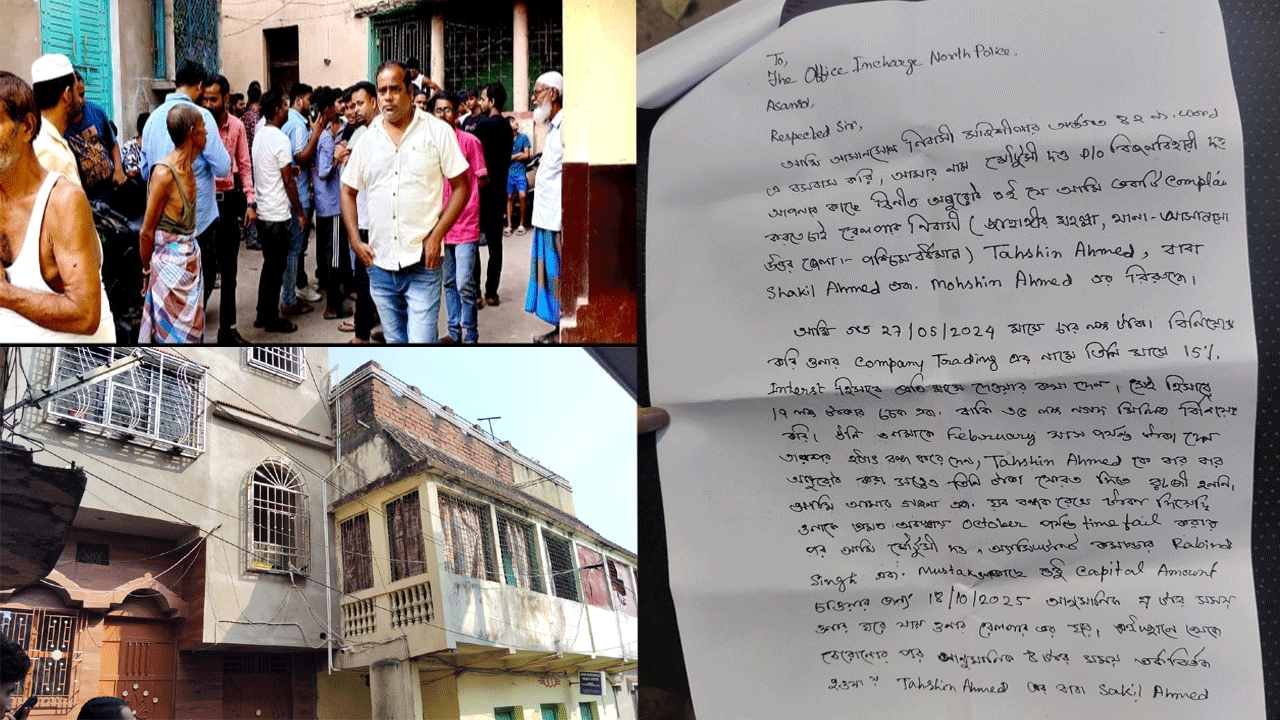 To,
The Office Imcharge North Police.
Asansol,
Respected Sir,
আমি আসানসোল নিবাসী মহিশীলার অর্ন্তগত ৪২ নং. word
এ বসবাস করি, আমার নাম মৌর্সুমী দত্ত D/O বিজনবিহারী দত্ত
আপনার কাছে বিনীত অনুরোধ এই যে আমি একটি Complai
করতে চাই রেলপার নিবাসী ( জাহাঙ্গীর মহল্লা, থানা - আসানসো
উত্তর জেলা :- পশ্চিমবর্ধমান ) Tahshin Ahmed, বাবা
Shakil Ahmed এবং Mohshin Ahmed এর বিরুদ্ধে।
আমি গত 27/05/2024 মাসে চার লক্ষ টাকা বিনিয়োগ
করি ওনার Company Trading এর নামে তিনি মাসে 15%
Interst হিসাবে প্রতি মাসে দেওয়ার কথা দেন, সেই হিসাবে
১৭ লক্ষ টাকার চেক এবং বাকি ৩৫ লক্ষ নগদ মিলিয়ে বিনিয়োগ
করি। উনি আমাকে February মাস পর্যন্ত টাকা দেন
তারপর হঠাৎ বন্ধ করে দেন, Tahshin Ahmed কে বার বার
অনুরোধ করা সত্ত্বেও তিনি টাকা ফেরত দিতে রাজী হননি,
আমি আমার গহনা এবং ঘর বন্ধক রেখে টাকা দিয়েছি
ওনাকে October পর্যন্ত time fail করার
পর আমি মৌর্সুমী দত্ত, কমান্ডার Rabind
Singh এবং Mustak এই Capital Amount
চাওয়ার জন্য 18/10/2025 আনুমানিক ৭ টার সময়
ওনার ঘরে যায় ওনার রেলপার এর ঘর, ওইখান থেকে
বেরোনোর পর আনুমানিক ৪ টার সময় তর্কাবির্তক
হওয়া? Tahshin Ahmed এর বাবা Sakil Ahmed